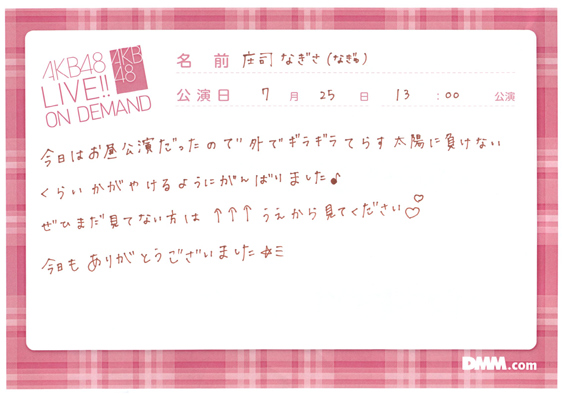 AKB48
LIVE!!
ON DEMAND
AKB
48
名 前 庄司 なぎさ (なぎゅ)
公演日 7 月 25 日 13 : 00 公演
今日はお昼公演だったので 外でギラギラてらす太陽に負けない
くらいかがやけるようにがんばりました♪
ぜひまだ見てない方は ↑↑↑ うえから見てください♡♡
今日も ありがとうございました☆ミ
DMM.com